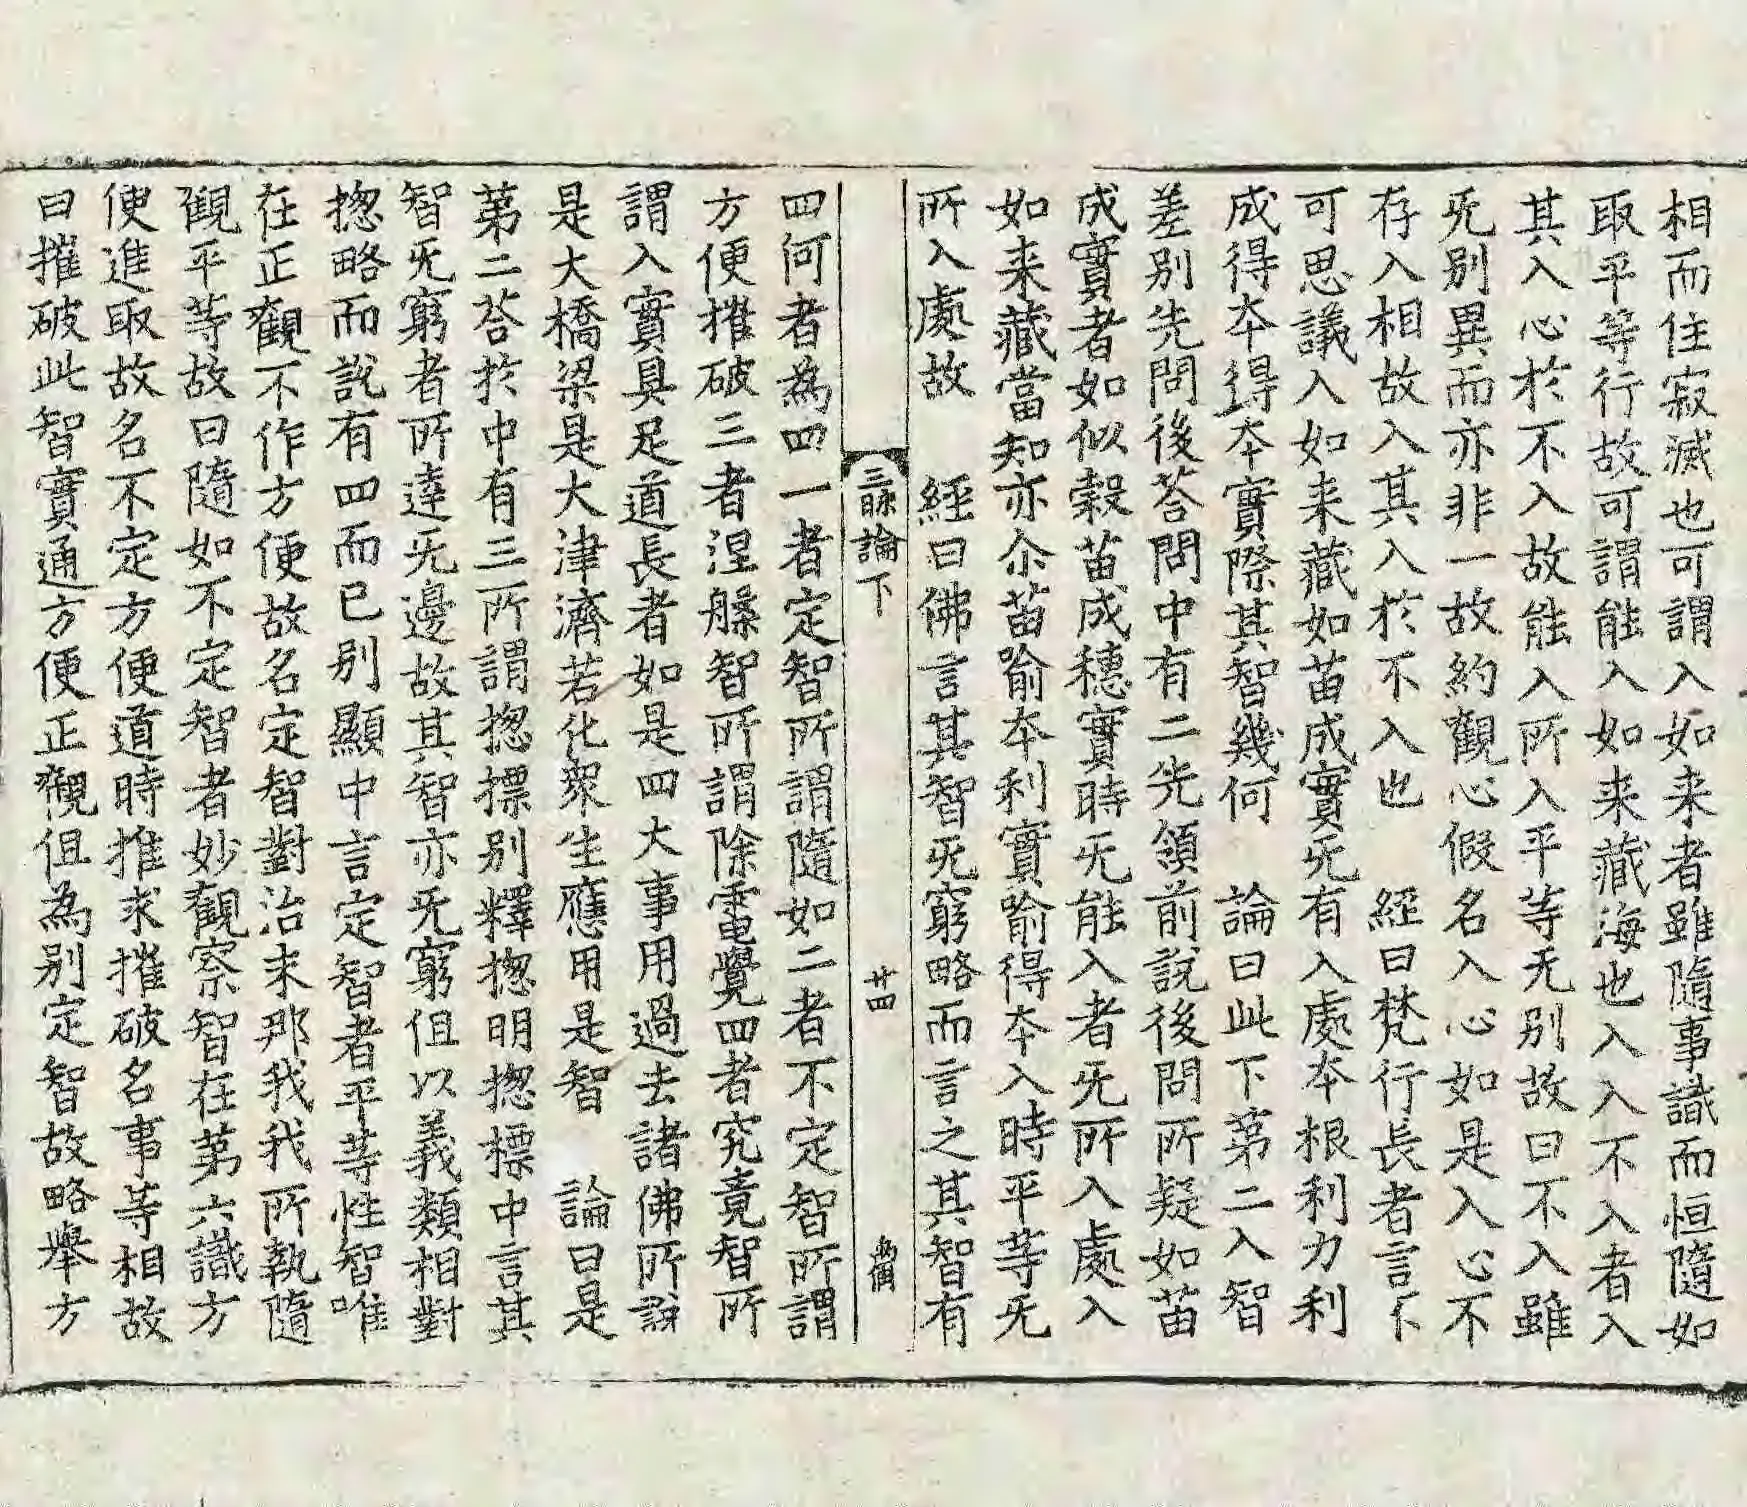 相而住寂滅也可謂入如来者雖隨事識而恒隨如
取平等行故可謂能入如来藏海也入入不入者入
其入心於不入故能入所入平等无别故曰不入雖
旡别異而亦非一故約觀心假名入心如是入心不
存入相故入其入於不入也　經曰梵行長者言不
可思議入如来藏如苗成實旡有入處本根利力利
成得本得本實際其智幾何　論曰此下第二入智
差别先問後荅問中有二先領前說後問所疑如苗
成實者如似糓苗成穗實時旡能入者旡所入處入
如来藏當知亦尒苗喻本利實喻得本入時平等旡
所入處故　經曰佛言其智旡窮略而言之其智有
三昧論下　廿四
四何者為四一者定智所謂隨如二者不定智所謂
方便摧破三者涅槃智所謂除電覺四者究竟智所
謂入實具足道長者如是四大事用過去諸佛所說
是大橋梁是大津濟若化衆生應用是智　論曰是
第二荅於中有三所謂揔摽别釋揔明揔標中言其
智旡窮者所達旡邊故其智亦旡窮但以義類相對
揔略而說有四而已别顯中言定智者平等性智唯
在正觀不作方便故名定智對治末那我我所執隨
觀平等故曰隨如不定智者妙觀察智在第六識方
便進取故名不定方便道時推求摧破名事等相故
曰摧破此智實通方便正觀但為别定智故略舉方